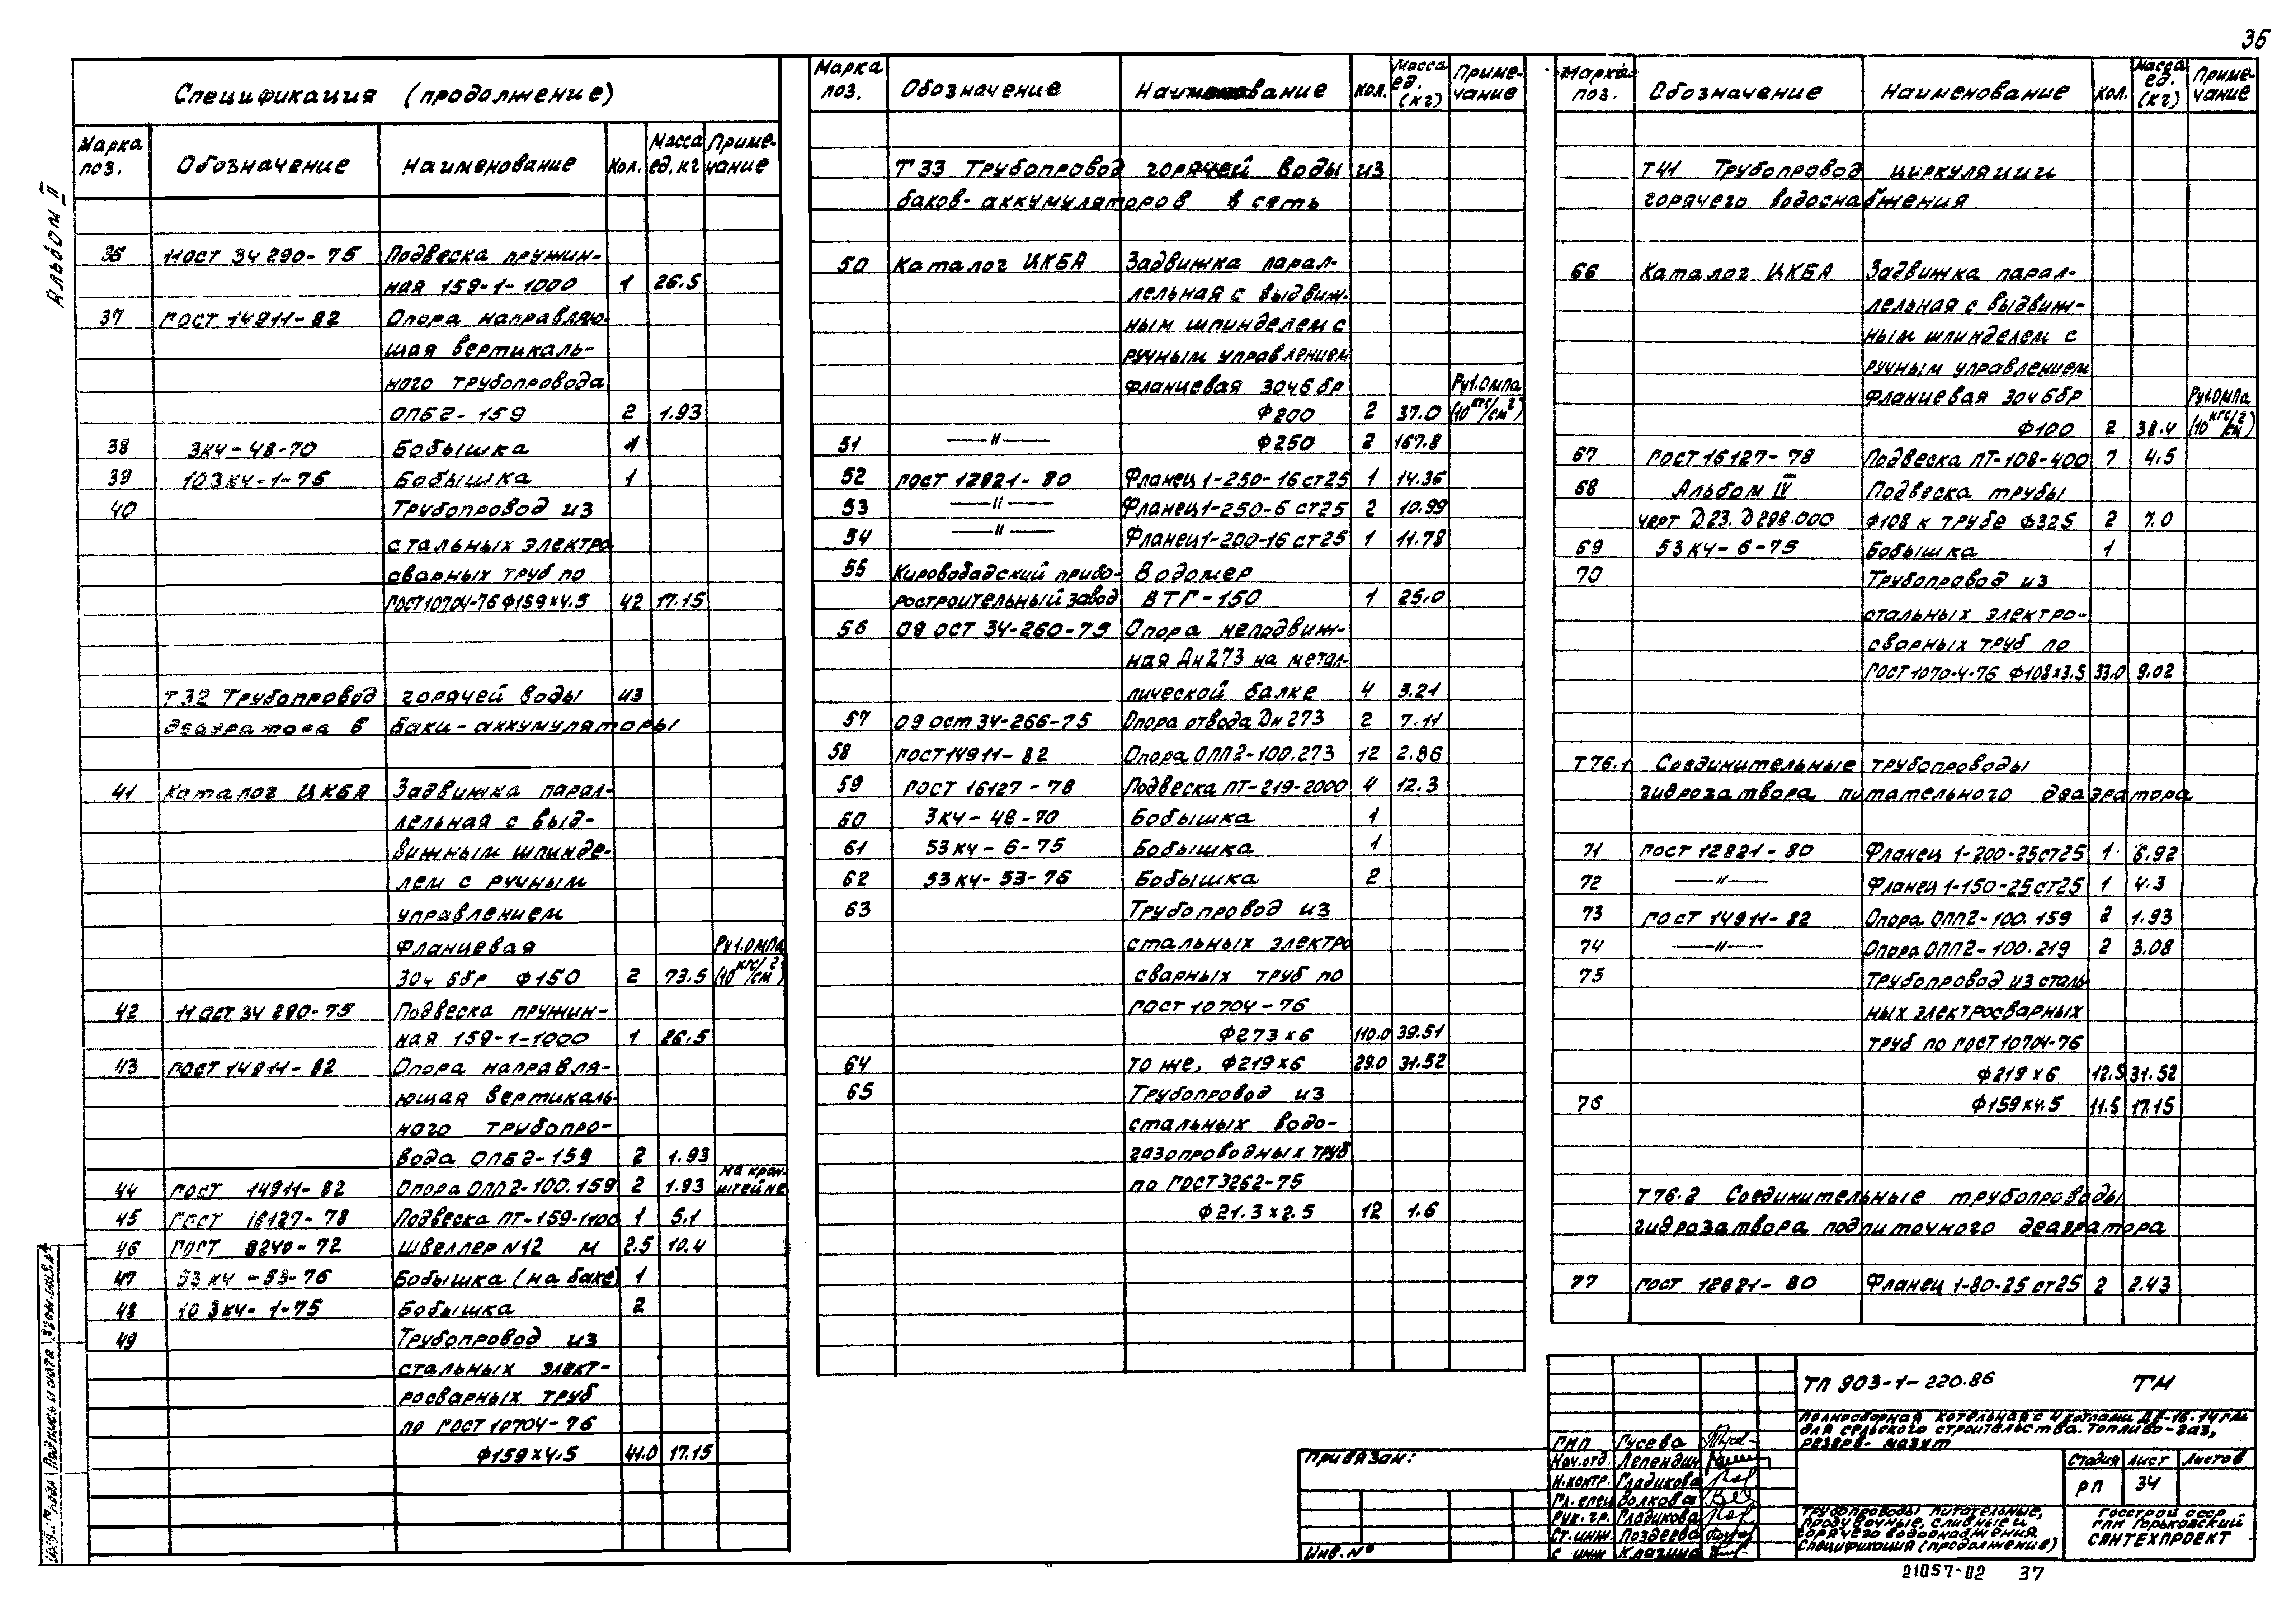 36
Альбом II
Спецификация (продолжение)
Марка поз. Обозначение Наименование Кол. Масса ед. кг Приме-чание
36 11 ОСТ 34 290-75 Подвеска пружин-
ная 159-1-1000 1 26.5
37 ГОСТ 14911-82 Опора направляю-
щая вертикаль-
ного трубопровода
ОПБ2-159 2 1.93
38 3К4-48-70 Бобышка 1
39 103К4-1-75 Бобышка 1
40 Трубопровод из
стальных электро
сварных труб по
ГОСТ 10704-76 ф159х4.5 42 17.15
Т32 Трубопровод горячей воды из
деаэратора в баки-аккумуляторы
41 Каталог ЦКБА Задвижка парал-
лельная с выд-
вижным шпинде-
лем с ручным
управлением
фланцевая Ру1.0МПа
30ч 6бр ф150 2 73.5 (10 кгс/см²)
42 11 ОСТ 34 290-75 Подвеска пружин-
ная 159-1-1000 1 26.5
43 ГОСТ 14911-82 Опора направля-
ющая вертикаль-
ного трубопро-
вода ОПБ2-159 2 1.93
44 ГОСТ 14911-82 Опора ОПП2-100.159 2 1.93 на крон-штейне
45 ГОСТ 16127-78 Подвеска ПТ-159-1100 1 5.1
46 ГОСТ 8240-72 Швеллер N12 м 2.5 10.4
47 53К4-53-76 Бобышка (на баке) 1
48 103К4-1-75 Бобышка 2
49 Трубопровод из
стальных элект-
росварных труб
по ГОСТ 10704-76
ф159х4.5 41.0 17.15
Марка поз. Обозначение Наименование Кол. Масса ед. (кг) Приме-чание
Т33 Трубопровод горячей воды из
баков-аккумуляторов в сеть
50 Каталог ЦКБА Задвижка парал-
лельная с выдвиж-
ным шпинделем с
ручным управлением
фланцевая 30ч6бр Ру1.0МПа
ф200 2 37.0 (10 кгс/см²)
51 —"— ф250 2 167.8
52 ГОСТ 12821-80 Фланец 1-250-16 ст25 1 14.36
53 —"— Фланец 1-250-6 ст25 2 10.99
54 —"— Фланец 1-200-16 ст25 1 11.78
55 Кировобадский прибо- Водомер
ростроительный завод ВТГ-150 1 25.0
56 09 ОСТ 34-260-75 Опора неподвиж-
ная Дн273 на метал-
лической балке 4 3.21
57 09 ост 34-266-75 Опора отвода Дн 273 2 7.11
58 ГОСТ 14911-82 Опора ОПП2-100.273 12 2.86
59 ГОСТ 16127-78 Подвеска ПТ-219-2000 4 12.3
60 3К4-48-70 Бобышка 1
61 53К4-6-75 Бобышка 1
62 53К4-53-76 Бобышка 2
63 Трубопровод из
стальных электро
сварных труб по
ГОСТ 10704-76
ф273х6 110.0 39.51
64 то же, ф219х6 29.0 31.52
65 Трубопровод из
стальных водо-
газопроводных труб
по ГОСТ 3262-75
ф21.3х2.5 12 1.6
Марка поз. Обозначение Наименование Кол. Масса ед. (кг) Приме-чание
Т41 Трубопровод циркуляции
горячего водоснабжения
66 Каталог ЦКБА Задвижка парал-
лельная с выдвиж-
ным шпинделем с
ручным управлением
фланцевая 30ч6бр Ру1.0МПа
ф100 2 38.4 (10 кгс/см²)
67 ГОСТ 16127-78 Подвеска ПТ-108-400 7 4.5
68 Альбом IV Подвеска трубы
черт Д23.Д298.000 ф108 к трубе ф325 2 7.0
69 53К4-6-75 Бобышка 1
70 Трубопровод из
стальных электро-
сварных труб по
ГОСТ 1070-4-76 ф108х3.5 33.0 9.02
Т76.1 Соединительные трубопроводы
гидрозатвора питательного деаэратора
71 ГОСТ 12821-80 Фланец 1-200-25 ст25 1 6.92
72 —"— Фланец 1-150-25 ст25 1 4.3
73 ГОСТ 14911-82 Опора ОПП2-100.159 2 1.93
74 —"— Опора ОПП2-100.219 2 3.08
75 Трубопровод из сталь
ных электросварных
труб по ГОСТ 10704-76
ф219х6 12.5 31.52
76 ф159х4.5 11.5 17.15
Т76.2 Соединительные трубопроводы
гидрозатвора подпиточного деаэратора
77 ГОСТ 12821-80 Фланец 1-80-25 ст25 2 2.43
ТП 903-1-220.86 ТМ
Полносборная котельная с 4 котлами ДЕ-16-14ГМ
для сельского строительства. Топливо-газ,
резерв-мазут
ГИП Гусева
Нач.отд. Лепендин
Н.контр. Гладикова
Гл.спец Волкова
Рук.гр. Гладикова
Ст.инж. Поздеева
инж Клагина
Стадия Лист Листов
РП 34
Трубопроводы питательные,
продувочные, сливные и
горячего водоснабжения
Спецификация (продолжение)
Госстрой СССР
ГПИ Горьковский
САНТЕХПРОЕКТ
Привязан:
Инв. №
Инв.№ подл Подпись и дата Взам.инв.№
21057-02 37